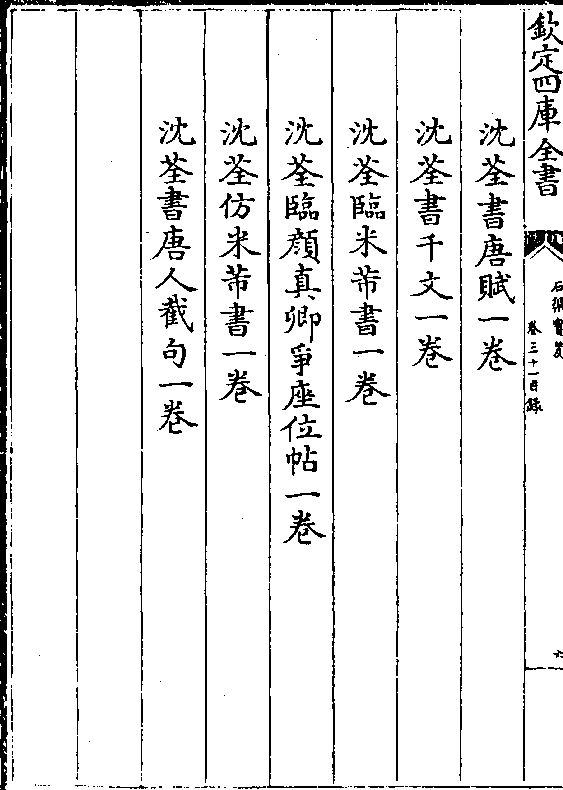 欽定四庫全書
石渠寶笈
卷三十一目録
六
沈荃書唐賦一卷
沈荃書千文一卷
沈荃臨米芾書一卷
沈荃臨顔真卿爭座位帖一卷
沈荃仿米芾書一卷
沈荃書唐人截句一卷